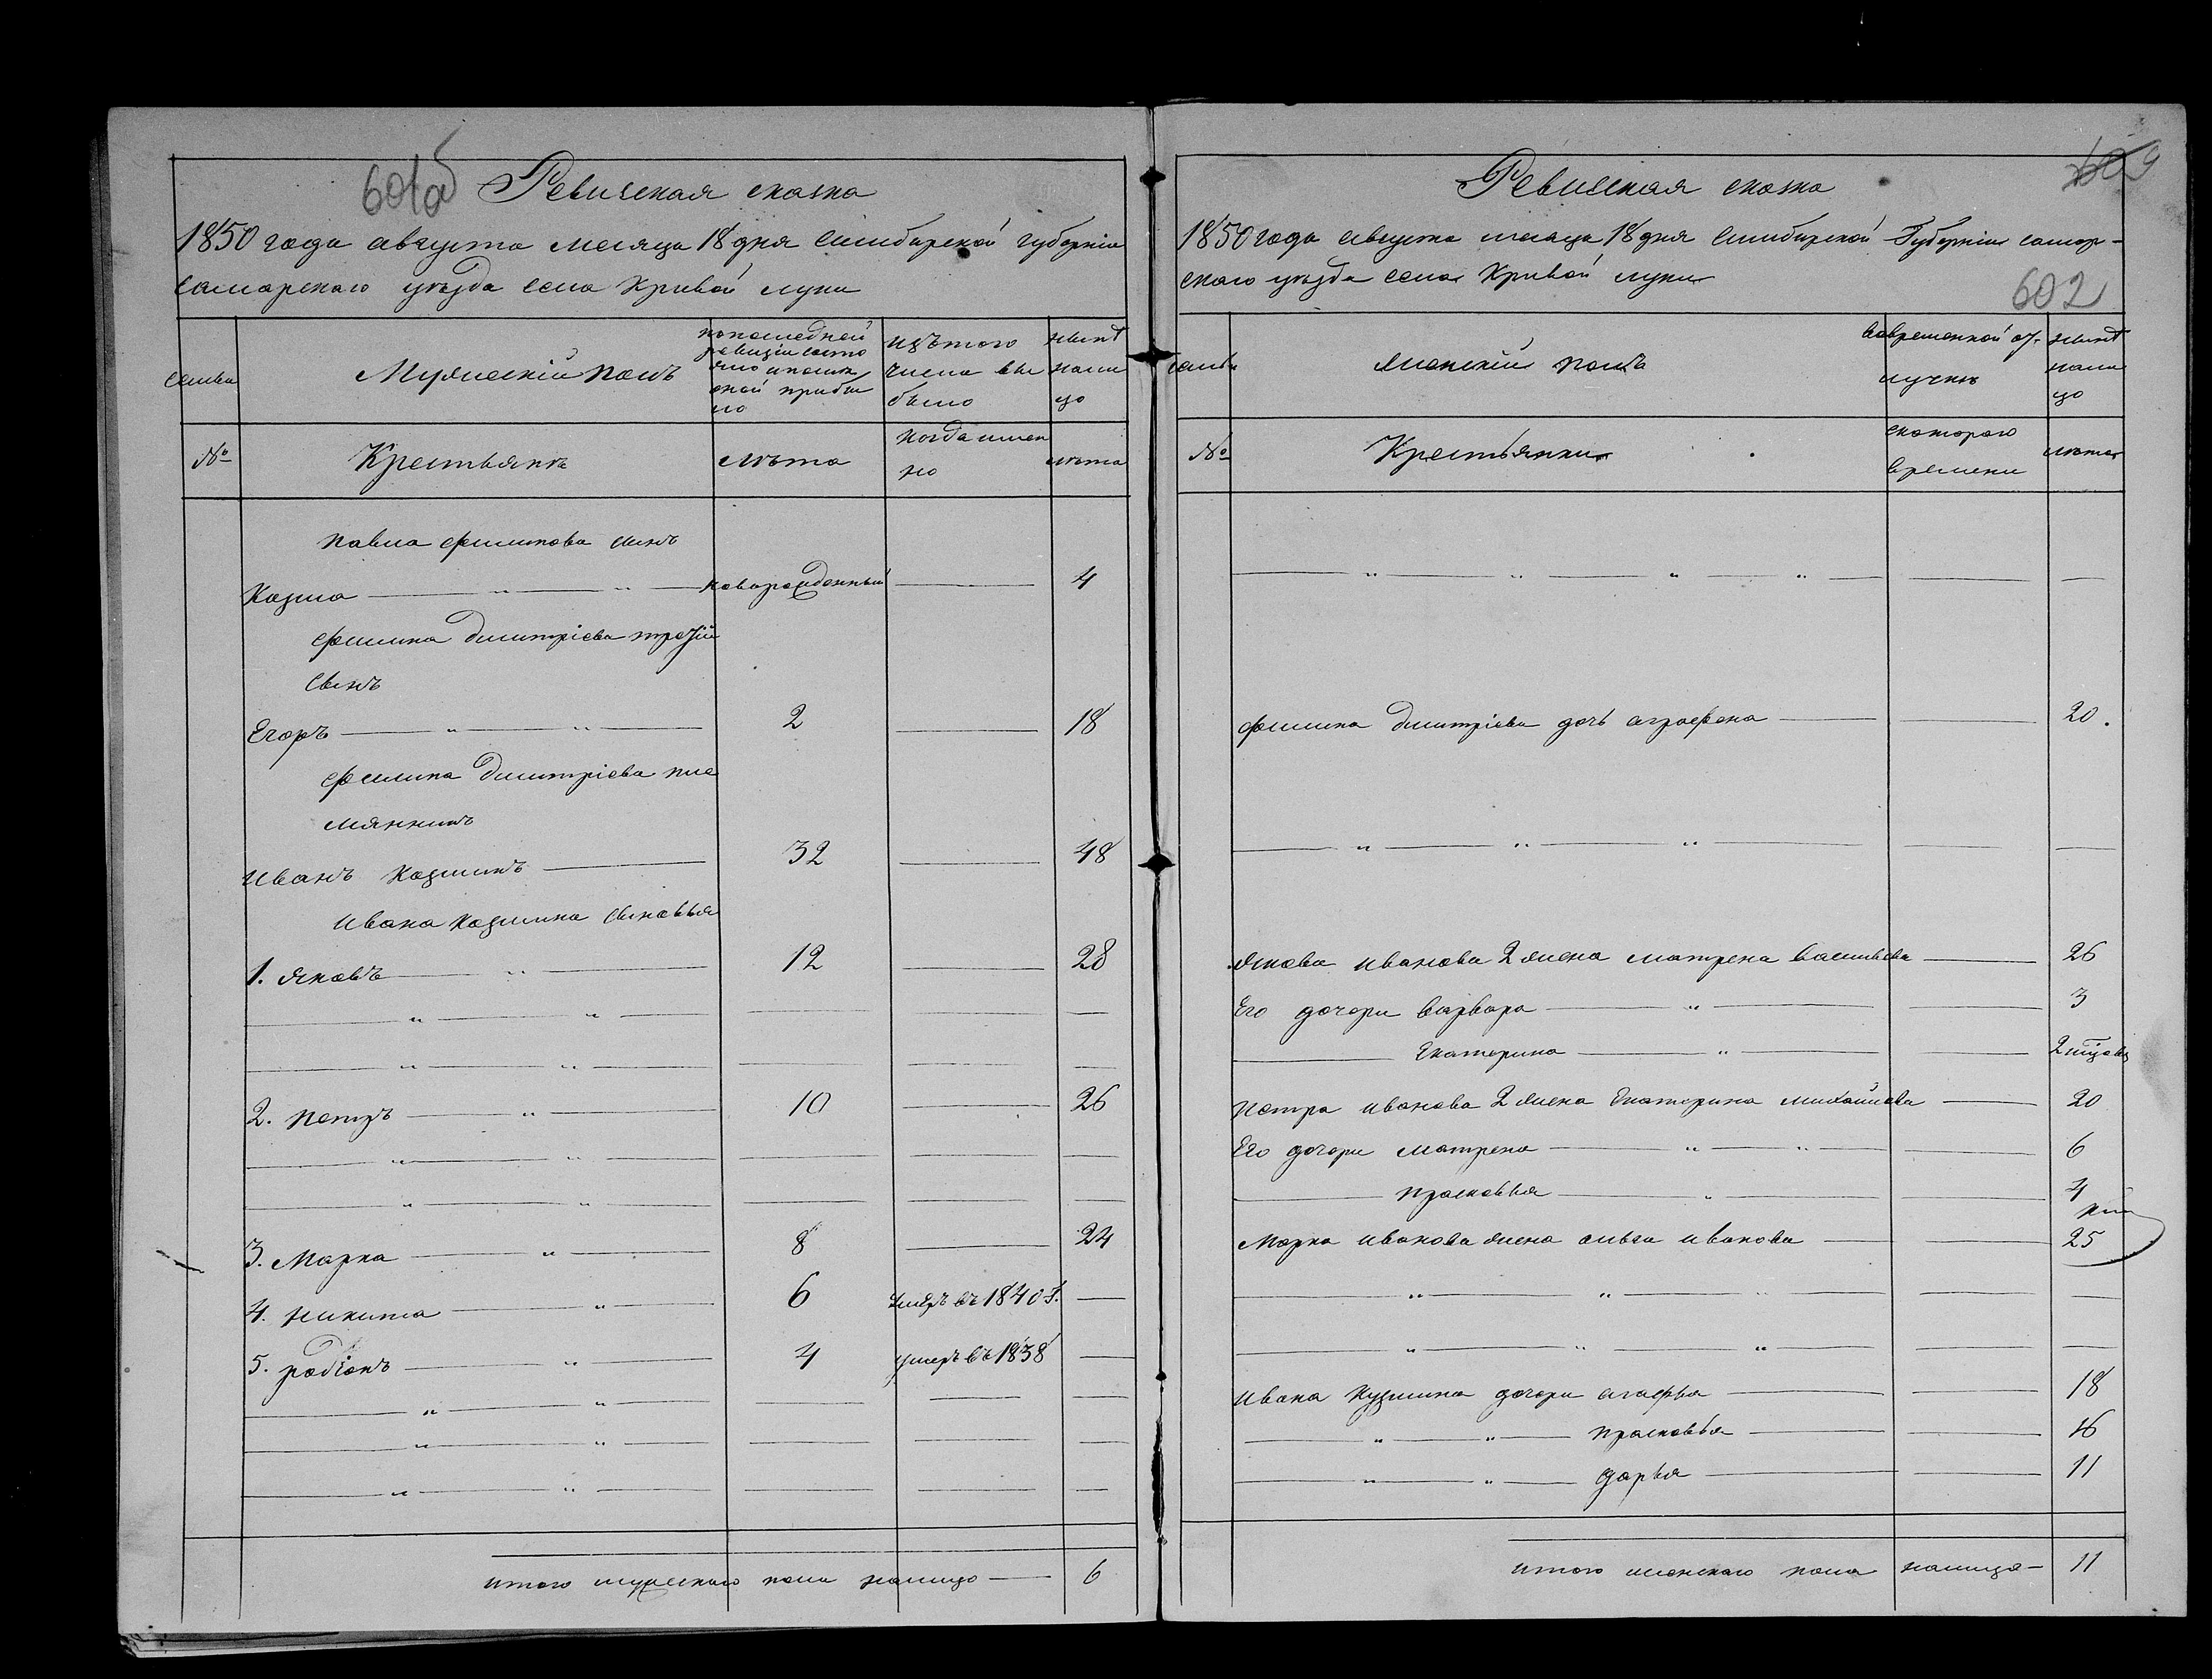 601об
Ревизская сказка
1850 года августа месяца 18 дня Симбирской губернiи
Самарскаго уѣзда села Кривой луки
Семьи
Мужескiй полъ
по последней
ревизiи состо
яло и после
оной прибы
ло
изъ того
числа вы
было
ныне
нали
цо
№
Крестьянъ
лѣта
когда имен
но
лѣта
павла филипова сынъ
Козма новорожденный 4
филипа димитрiева третiй
сынъ
Егоръ 2 18
филипа димитрiева пле
мянникъ
Иванъ Козминъ 32 48
Ивана Козмина сыновья
1. Яковъ 12 28
2. Петръ 10 26
3. Марка 8 24
4. Никита 6 умеръ въ 1840 г.
5. родiонъ 4 умеръ въ 1838
итого мужескаго пола налицо 6
Ревизская сказка
1850 года августа месяца 18 дня Симбирской Губернiи самар-
скаго уѣзда села Кривой луки
602
Семьи
женскiй полъ
вовременной от-
лучке
ныне
нали
цо
№
Крестьянки
скотораго
времени
лѣта
филипа димитрiева дочь аграфена 20.
Якова Иванова 2 жена матрена васильева 26
Его дочери варвара 3
Екатерина 2 мцовъ
Петра Иванова 2 жена Екатерина михайлова 20
Его дочери матрена 6
прасковья 4
Марка Иванова жена ольга Иванова 25
Ивана Кузмина дочери агафья 18
прасковья 16
дарья 11
итого женскаго пола налицо 11